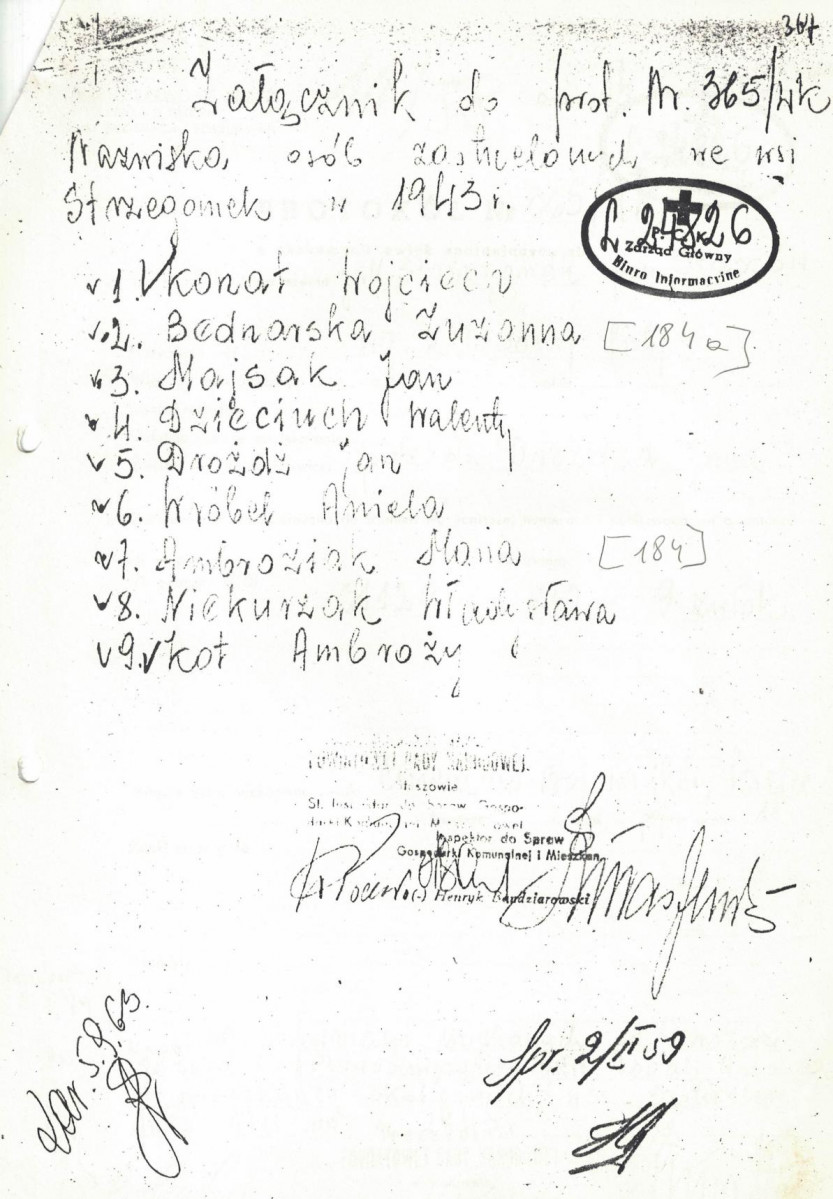 367
Załącznik do prot. Nr. 365/wk
Nazwiska osób zastrzelonych we wsi
Strzegomek w 1943 r.
L 24826
P.C.K.
Zarząd Główny
Biuro Informacyjne
v 1. v Konat Wojciech
v. 2. Bednarska Zuzanna [184a]
v. 3. Majsak Jan
v 4. Dzieciuch Walenty
v 5. Drożdż Jan
v 6. Wróbel Aniela
v 7. Ambroziak Maria [184]
v 8. Niekurzak Władysława
v 9. v Kot Ambroży
POWIATOWEJ RADY NARODOWEJ
St. Instruktor do Spraw Gospo-
Inspektor do Spraw
Gospodarki Komunalnej i Mieszkan.
(-) Henryk Bandziarowski
Zar. 5.9.63
Spr. 2/II 59